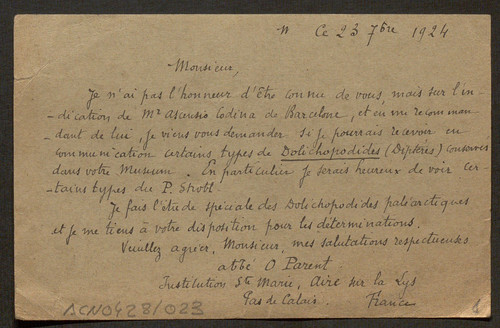 Ce 23 7bre 1924
Monsieur,
Je n'ai pas l'honneur d'Etre connu de vous, mais sur l'in-
dication de Mr Ascensio Codina de Barcelone, et en me recomman
dant de lui, je viens vous demander si je pourrais recevoir en
communication certains types de Dolichopodides (Diptères) conservés
dans votre Museum. En particulier je serais heureux de voir cer-
tains types du P. Strobl.
Je fais l'étude spéciale des Dolichopodides paléarctiques
et je me tiens à votre disposition pour les déterminations.
Veuillez agréer, Monsieur, mes salutations respectueuses
abbé O Parent
Institution Ste Marie, Aire sur la Lys
Pas de Calais. France
ACN0428/023